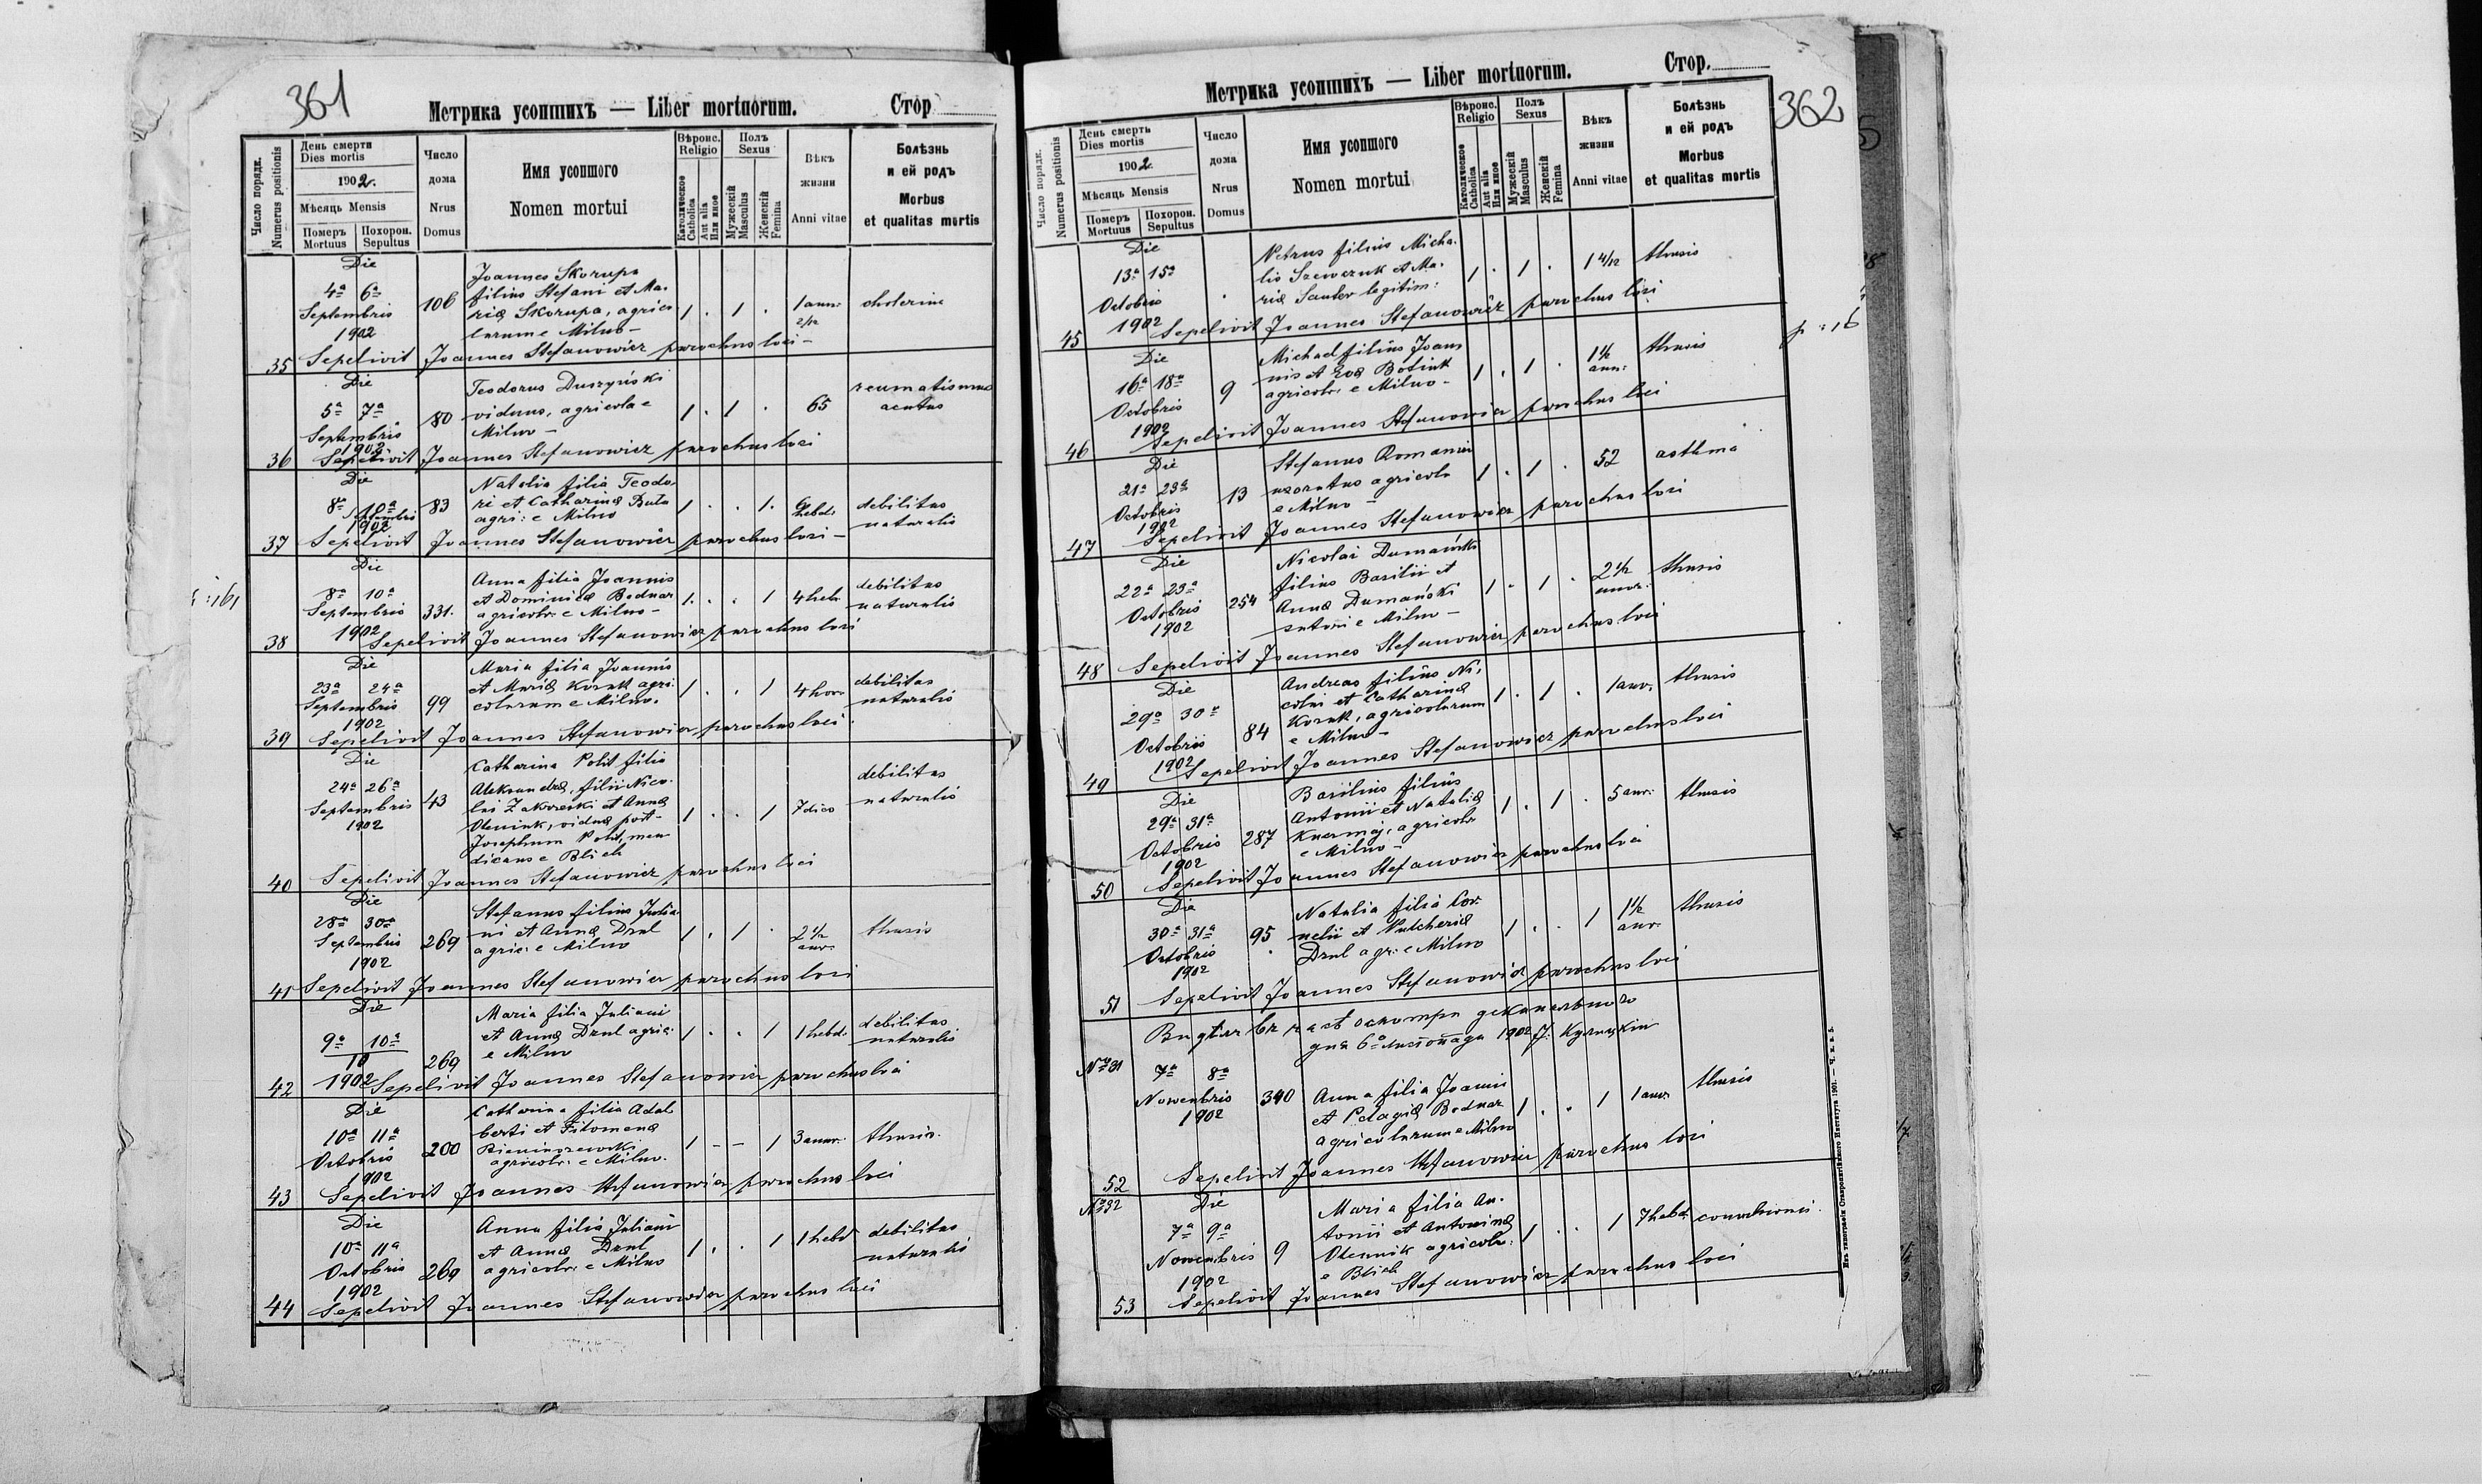 361
Метрика усопшихъ — Liber mortuorum.
Стор
Число порядк.
Numerus positionis
День смерти
Dies mortis
1902.
Мѣсяць Mensis
Померъ
Mortuus
Похорон.
Sepultus
Число
дома
Nrus
Domus
Имя усопшого
Nomen mortui
Вѣроис.
Religio
Католическое
Catholica
Aut alia
Или иное
Полъ
Sexus
Мужескій
Masculus
Женскій
Femina
Вѣкъ
жизни
Anni vitae
Болѣзнь
и ей родъ
Morbus
et qualitas mortis
Die
4ª 6ª
Septembris
1902
106
Joannes Skorupa
filius Stefani et Ma-
riæ Skorupa, agrico
larum e Milno —
1 . 1 .
1 ann:
2/12
cholerine
35 Sepelivit Joannes Stefanowicz parochus loci —
Die
5ª 7ª
Septembris
1902
80
Teodorus Duszyński
viduus, agricola e
Milno —
1 . 1 .
65
reumatismus
acutus
36 Sepelivit Joannes Stefanowicz parochus loci
Die
8ª 10ª
Septembri
1902
83
Natalia filia Teodo-
ri et Catharinæ Buta
agri: e Milno
1 . . 1.
6 hebd:
debilitas
naturalis
37 Sepelivit Joannes Stefanowicz parochus loci —
Die
8ª 10ª
Septembris
1902
331.
Anna filia Joannis
et Dominicæ Bednar
agricolr: e Milno —
1. . . 1
4 heb.
debilitas
naturalis
38 Sepelivit Joannes Stefanowicz parochus loci
Die
23ª 24ª
Septembris
1902
99
Maria filia Joannis
et Mariæ Kozak agri
colarum e Milno.
1 . . 1
4 hor:
debilitas
naturalis
39 Sepelivit Joannes Stefanowicz parochus loci
Die
24ª 26ª
Septembris
1902
43
Catharina Polit filia
Aleksandræ, filii Nico-
lai Zakorski et Annæ
Olenink, vidua post
Josephum Polit, men
dicans e Blich
1 . . 1
7 dies
debilitas
naturalis
40 Sepelivit Joannes Stefanowicz parochus loci
Die
28ª 30ª
Septembris
1902
269
Stefanus filius Julia
ni et Annæ Drul
agric: e Milno
1 . 1 .
2 1/2
ann:
thusis
41 Sepelivit Joannes Stefanowicz parochus loci
Die
9ª 10ª
10
1902
269
Maria filia Juliani
et Annæ Drul agric:
e Milno
1 . . 1
1 hebd.
debilitas
naturalis
42 Sepelivit Joannes Stefanowicz parochus loci
Die
10ª 11ª
Octobris
1902
200
Catharina filia Adal
berti et Filomenæ
agricolr: e Milno.
1 - - 1
3 ann:
thusis.
43 Sepelivit Joannes Stefanowicz parochus loci
Die
10ª 11ª
Octobris
1902
269
Anna filia Juliani
et Annæ Drul
agricolr: e Milno
1 . . 1
1 hebd
debilitas
naturalis
44 Sepelivit Joannes Stefanowicz parochus loci
362
Метрика усопшихъ — Liber mortuorum.
Стор.
Число порядк.
Numerus positionis
День смерть
Dies mortis
1902.
Мѣсяць Mensis
Померъ
Mortuus
Похорон.
Sepultus
Число
дома
Nrus
Domus
Имя усопшого
Nomen mortui
Вѣроис.
Religio
Католическое
Catholica
Aut alia
Или иное
Полъ
Sexus
Мужескій
Masculus
Женскій
Femina
Вѣкъ
жизни
Anni vitae
Болѣзнь
и ей родъ
Morbus
et qualitas mortis
Die
13ª 15ª
Octobris
1902
Petrus filius Micha-
lis Szewczuk et Ma-
riæ Sauter legitim:
1 . 1 .
1 4/12
thusis
45 Sepelivit Joannes Stefanowicz parochus loci
Die
16ª 18ª
Octobris
1902
9
Michael filius Joan
nis et Evæ Botiuk
agricolr: e Milno —
1 . 1 .
1 1/2
ann:
thusis
46 Sepelivit Joannes Stefanowicz parochus loci
Die
21ª 23ª
Octobris
1902
13
Stefanus Romaniu
uxoratus agricola
e Milno —
1 . 1 .
52
asthma
47 Sepelivit Joannes Stefanowicz parochus loci
Die
22ª 23ª
Octobris
1902
254
Nicolai Dumański
filius Basilii et
Annæ Dumański
sutori e Milno —
1 . 1 .
2 1/2
ann:
thusis
48 Sepelivit Joannes Stefanowicz parochus loci
Die
29ª 30ª
Octobris
1902
84
Andreas filius Ni-
colai et Catharinæ
Kozak, agricolarum
e Milno —
1 . 1 .
1 ann:
thusis
49 Sepelivit Joannes Stefanowicz parochus loci
Die
29ª 31ª
Octobris
1902
287
Basilius filius
Antonii et Nataliæ
Kuzmij, agricolr
e Milno —
1 . 1 .
5 ann:
thusis
50 Sepelivit Joannes Stefanowicz parochus loci
Die
30ª 31ª
Octobris
1902
95
Natalia filia Cor-
nelii et Pulcheriæ
Drul agr: e Milno
1 . . 1
1 1/2
ann:
thusis
51 Sepelivit Joannes Stefanowicz parochus loci
дня 6го листопада 1902
No 31
7ª 8ª
Nowembris
1902
340
Anna filia Joannis
et Pelagiæ Bednar
agricolarum e Milno
1 . . 1
1 ann
thusis
52 Sepelivit Joannes Stefanowicz parochus loci
No 32
Die
7ª 9ª
Nowembris
1902
9
Maria filia An-
tonii et Antoninæ
Olejnik agricolr:
e Blich
1 . . 1
7 hebd.
convulsionis.
53 Sepelivit Joannes Stefanowicz parochus loci
Изъ типографіи Ставропигійского Института 1901. — Ч. з. в. 5.